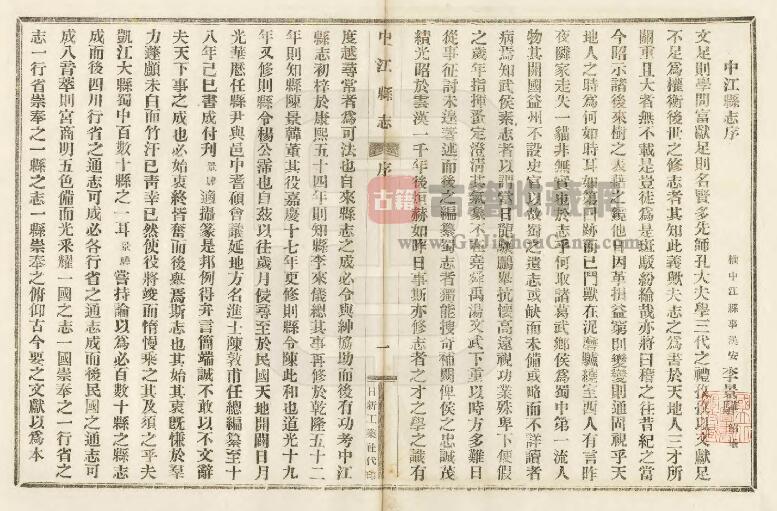 中江縣志序
權中江縣事漢安李景
文足則學問富獻足則名賢多先師孔大夫學三代之禮以文獻足
不足為權衡後世之修志者其知此義歟夫志之為書於天地人三才所
關重且大者無不載是豈徒為是斑駁紛綸哉亦將曰稽之往昔紀之當
今昭示諸後來樹之表藉之鏡他日因革損益窮則變變則通固視乎天
地人之時為何如時耳如蕩跡而已鬥獸在泥塵驥繞至西人有言昨
夜隣家走失一貓非無實也於志乎何取諸葛武鄉侯為蜀中第一流人
物其開國益州不設史官以故蜀之遺志或缺而未備或略而不詳讀者
病焉知武侯素志者以日龍驤鵬舉抗懷高遠視功業殊卑下使假
之歲年指揮蓋定澄清其氣象不在堯舜禹湯文武下重以時方多難日
從事征討未遑著述而後之編纂蜀志者獨能搜奇補闕俾侯之忠誠茂
績光昭於雲漢一千年後煊赫如昨日事斯亦修志者之才之學之識有
中江縣志
序
一
日新工業社代印
度越尋常者為可法也自來縣志之成必令與紳協助而後有功考中江
縣志初梓於康熙五十四年則知縣李來儀總其事再修於乾隆五十二
年則知縣陳景韓董其役嘉慶十七年更修則縣令陳此和也道光十九
年又修則縣令楊公霈也自茲以往歲月侵尋至於民國天地開闢日月
光華歷任縣尹與邑中耆碩會議延地方名進士陳敦甫任總編纂至十
八年己巳書成付刊景適攝篆是邦例得弁言簡端誠不敢以不文辭
夫天下事之成也必始衷終皆奮而後興焉斯志也其始其衷既慊於羣
力蓬顱未白而竹汗已青幸已然使役將竣而惰慢乘之其及須之乎夫
凱江大縣蜀中百數十縣之一耳景嘗持論以為必百數十縣之縣志
成而後四川行省之通志可成必各行省之通志成而後民國之通志可
成八音萃則宮商明五色備而光釆耀一國之志一國崇奉之一行省之
志一行省崇奉之一縣之志一縣崇奉之俯仰古今要之文獻以為本
古籍
古籍收藏庫
GuJiShouCang.Com